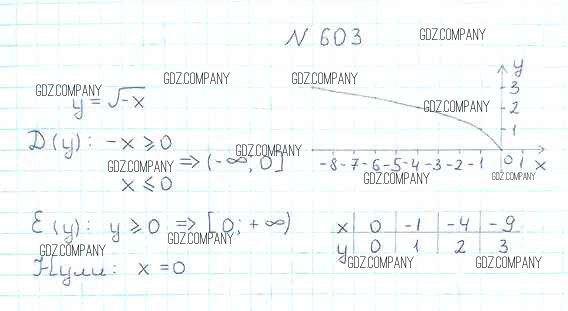 N 603
GDZ.COMPANY
GDZ.COMPANY
GDZ.COMPANY
GDZ.COMPANY
y = √-x
y
3
2
1
GDZ.COMPANY
D(y): -x ⩾ 0
GDZ.COMPANY
GDZ.COMPANY
⇒ (-∞, 0]
x ⩽ 0
-8 -7 -6 -5 -4 -3 -2 -1 0 1 x
GDZ.COMPANY
GDZ.COMPANY
E(y): y ⩾ 0 ⇒ [0; +∞)
GDZ.COMPANY
x 0 -1 -4 -9
y 0 1 2 3
GDZ.COMPANY
GDZ.COMPANY
GDZ.COMPANY
Нули: x = 0